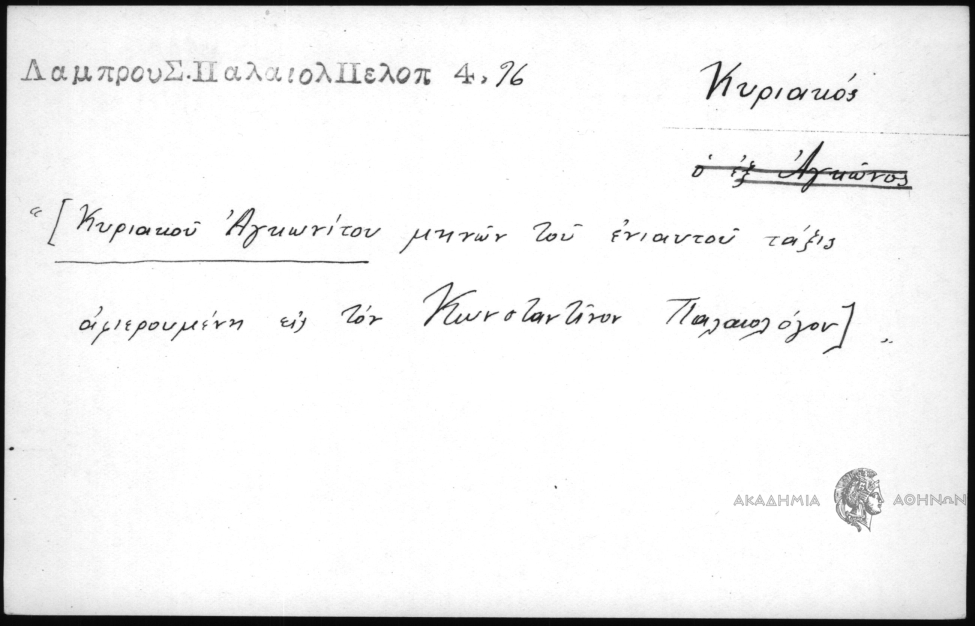 ΛαμπρουΣ.ΠαλαιολΠελοπ 4,96
Κυριακός
ὁ ἐξ Ἀγκῶνος
“[Κυριακοῦ Ἀγκωνίτου μηνῶν τοῦ ἐνιαυτοῦ τάξις
ἀφιερουμένη εἰς τόν Κωνσταντῖνον Παλαιολόγον]„
ΑΚΑΔΗΜΙΑ ΑΘΗΝΩΝ